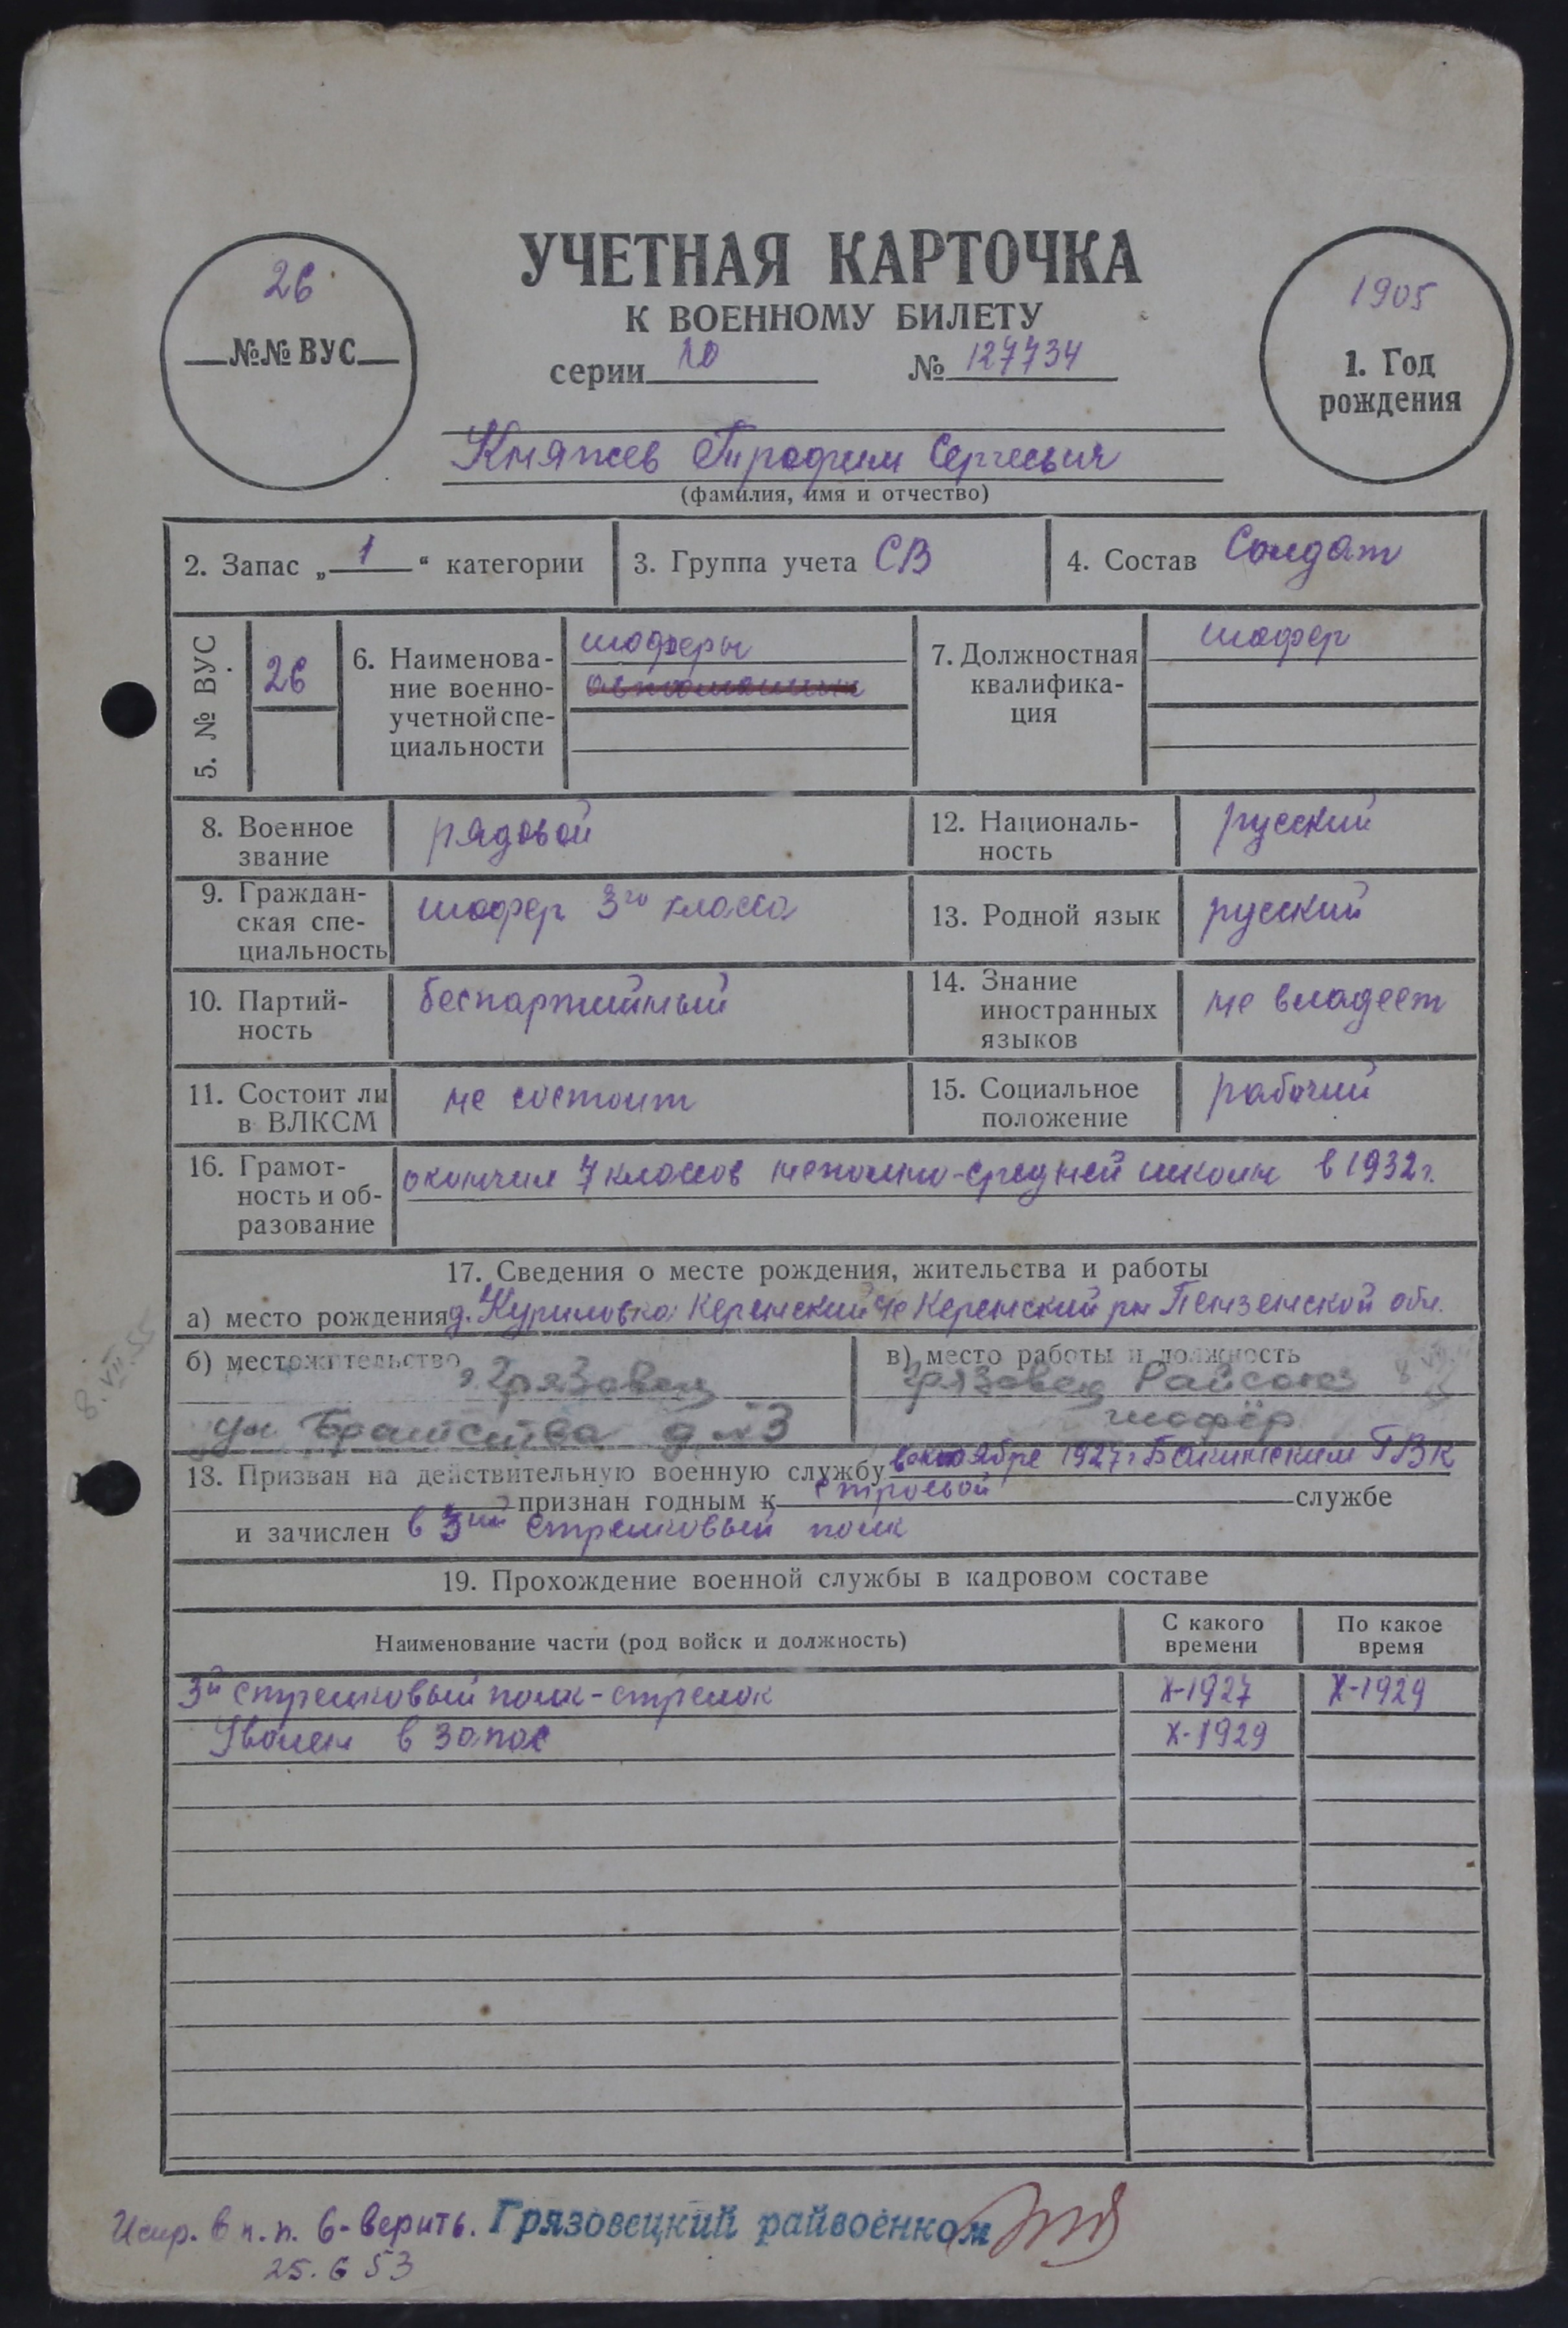 УЧЕТНАЯ КАРТОЧКА
К ВОЕННОМУ БИЛЕТУ
26
№№ ВУС
серии № 127734
1905
1. Год
рождения
Княжев Трофим Сергеевич
(фамилия, имя и отчество)
2. Запас „ 1 “ категории
3. Группа учета СВ
4. Состав Солдат
5. № ВУС
26
6. Наименова-
ние военно-
учетной спе-
циальности
шоферы
7. Должностная
квалифика-
ция
шофер
8. Военное
звание
рядовой
12. Националь-
ность
русский
9. Граждан-
ская спе-
циальность
шофер 3го класса
13. Родной язык
русский
10. Партий-
ность
беспартийный
14. Знание
иностранных
языков
не владеет
11. Состоит ли
в ВЛКСМ
не состоит
15. Социальное
положение
рабочий
16. Грамот-
ность и об-
разование
окончил 7 классов неполно-средней школы в 1932 г.
17. Сведения о месте рождения, жительства и работы
а) место рождения д. Куриловка Керенский Керенский рн Пензенской обл.
б) местожительство
г. Грязовец
ул. Братства д. №3
в) место работы и должность
Грязовец Райсоюз
шофёр
8. VII. 55
18. Призван на действительную военную службу в октябре 1927 г Бакинским ГВК
признан годным к строевой службе
и зачислен в 3ий стрелковый полк
19. Прохождение военной службы в кадровом составе
Наименование части (род войск и должность)
С какого
времени
По какое
время
3й стрелковый полк - стрелок X-1927 X-1929
Уволен в запас X-1929
Испр. в п. п. 6 - верить. Грязовецкий райвоенком
25. 6 53